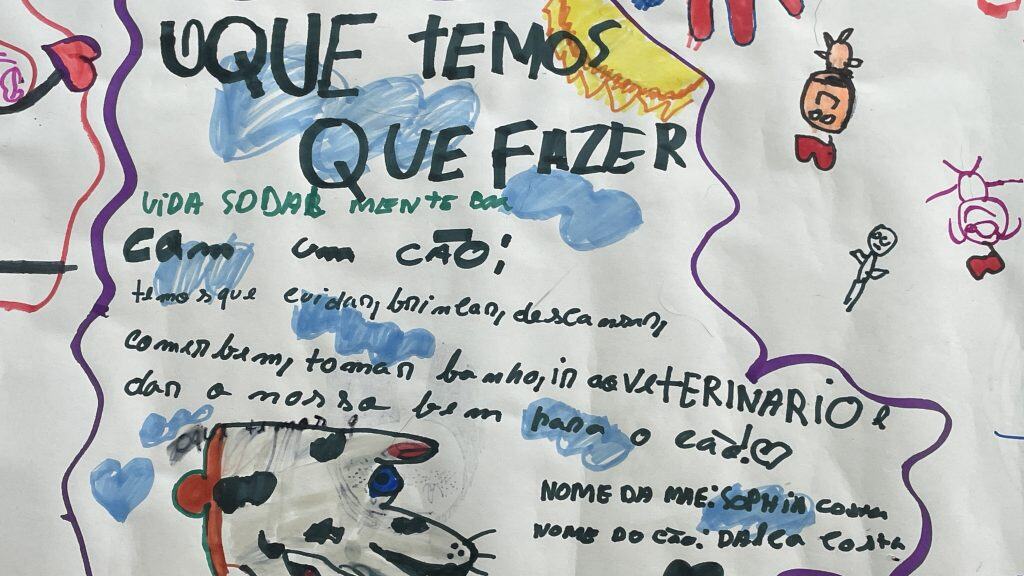 UQUE TEMOS
QUE FAZER
VIDA SODAB MENTE
Cam um CÃO:
temos que cuidar, brincar, descansar,
comer bem, tomar banho, ir ao VETERINARIO e
dar o nossa bem para o cão!
NOME DA MÃE: SOPHIA Costa
NOME DO CÃO: DAsca Costa